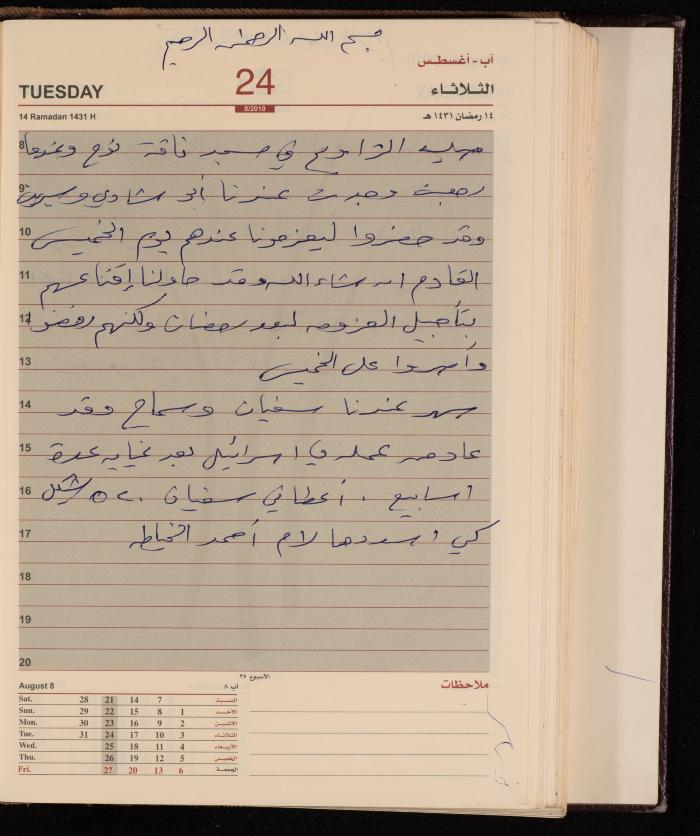 بسم الله الرحمن الرحيم
آب - أغسطس
TUESDAY 24 الثلاثاء
8/2010
14 Ramadan 1431 H ١٤ رمضان ١٤٣١ هـ
8 صليت التراويح في مسجد ناقة نوح وعندما
9 رجعت وجدت عندنا أبو شادي وسيرين
10 وقد حضروا ليعزمونا عندهم يوم الخميس
11 القادم ان شاء الله وقد حاولنا إقناعهم
12 بتأجيل العزومه لبعد رمضان ولكنهم رفضوا
13 وأصروا على الخميس
14 سهر عندنا سفيان وسماح وقد
15 عاد من عمله في اسرائيل بعد غياب عدة
16 اسابيع . أعطاني سفيان ٥٢٠ شيكل
17 كي اسددها لام أحمد الخياطه
18
19
20
August 8 آب ٨ الأسبوع ٣٥ ملاحظات
Sat. 28 21 14 7 السبت
Sun. 29 22 15 8 1 الأحد
Mon. 30 23 16 9 2 الاثنين
Tue. 31 24 17 10 3 الثلاثاء
Wed. 25 18 11 4 الأربعاء
Thu. 26 19 12 5 الخميس
Fri. 27 20 13 6 الجمعة